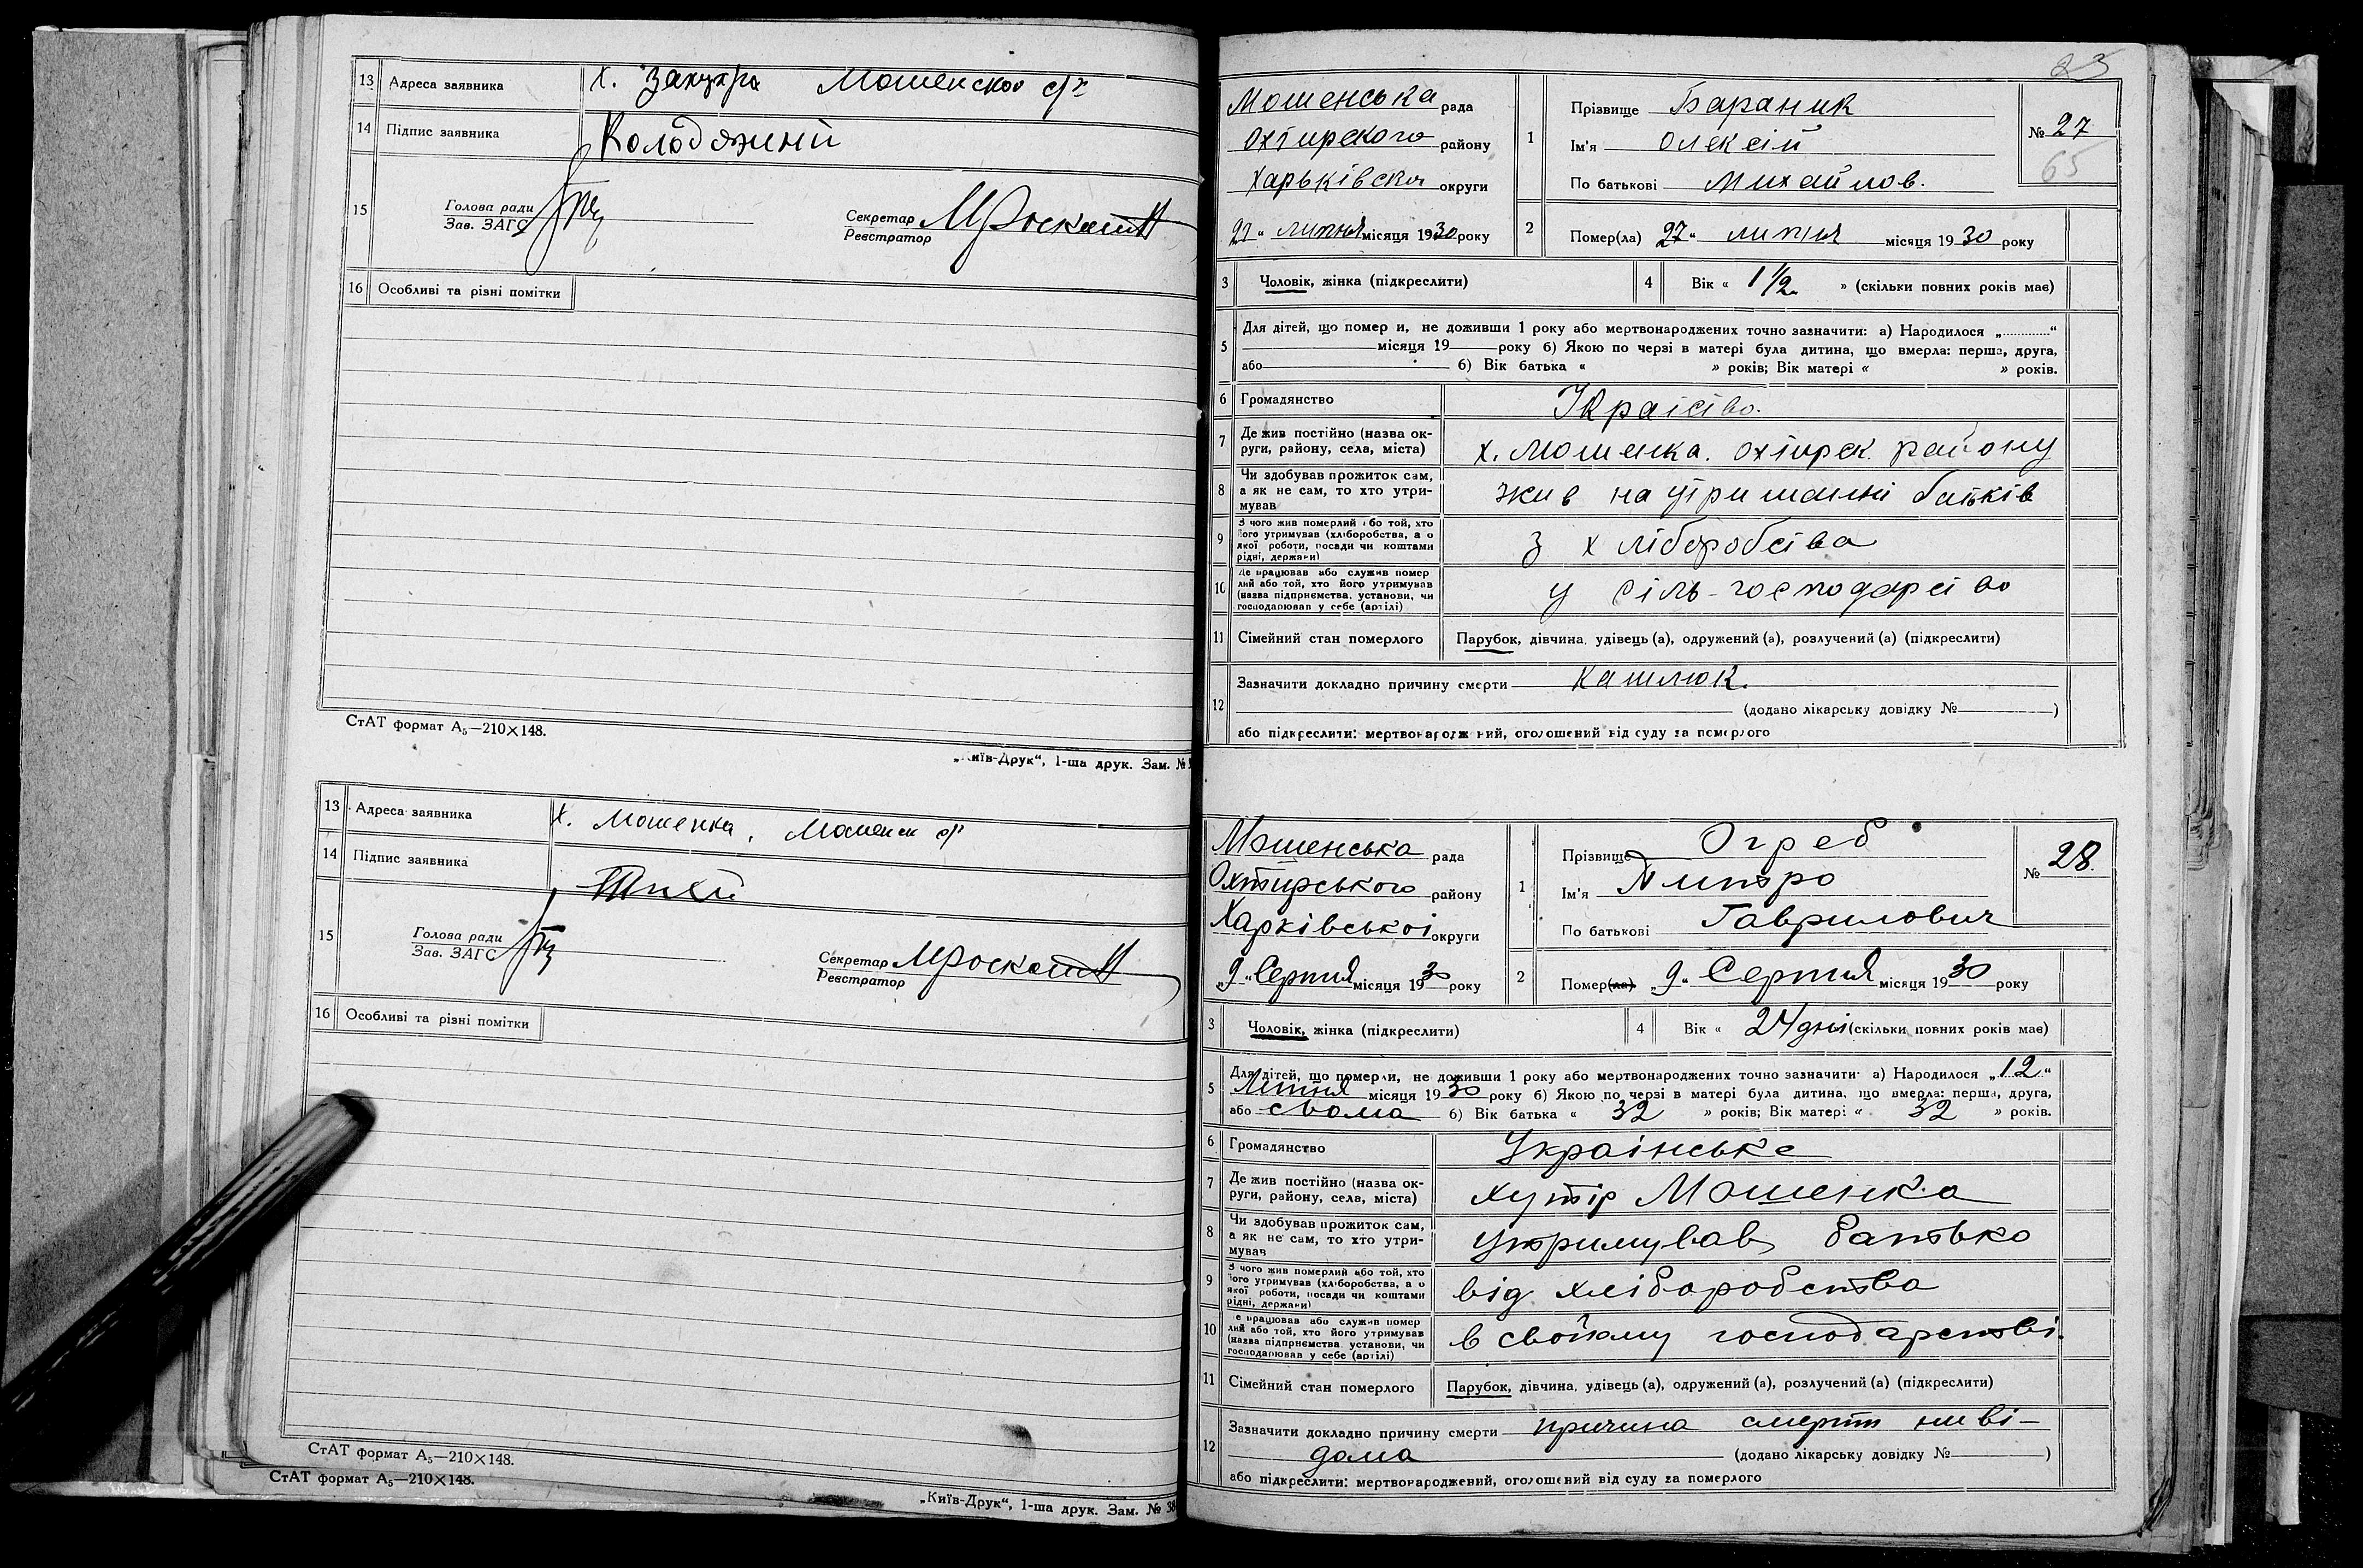 13 Адреса заявника х. Закукра Мошенскоо с/р
14 Підпис заявника Колодяжний
15 Голова ради
Зав. ЗАГС
Секретар
Реєстратор
16 Особливі та різні помітки
СтАТ формат А₅—210×148.
„Київ-Друк“, 1-ша друк. Зам. №
13 Адреса заявника х. Мошенка, Мошенск с/р
14 Підпис заявника Тихий
15 Голова ради
Зав. ЗАГС
Секретар
Реєстратор
16 Особливі та різні помітки
СтАТ формат А₅—210×148.
СтАТ формат А₅—210×148.
„Київ-Друк“, 1-ша друк. Зам. № 38
23
Мошенська рада
Охтирского району
Харьківскоі округи
27 „ липня місяця 1930 року
1 Прізвище Бараник
Ім'я Олексій
По батькові Михайлов.
№ 27
65
2 Помер(ла) 27 „ липня місяця 1930 року
3 Чоловік, жінка (підкреслити)
4 Вік « 1 1/2 » (скільки повних років має)
5 Для дітей, що помер и, не доживши 1 року або мертвонароджених точно зазначити: а) Народилося „............“
місяця 19 року б) Якою по черзі в матері була дитина, що вмерла: перша, друга,
або б) Вік батька « » років; Вік матері « » років.
6 Громадянство Украіство.
7 Де жив постійно (назва округи, району, села, міста) х. Мошенка. Охтирск. району
8 Чи здобував прожиток сам, а як не сам, то хто утримував жив на утриманні батьків
9 З чого жив померлий або той, хто його утримував (хліборобства, а о якої роботи, посади чи коштами рідні, держави) з хліборобства
10 Де працював або служив помер лий або той, хто його утримував (назва підприємства, установи, чи господарював у себе (артілі) у сіль-господарство
11 Сімейний стан померлого Парубок, дівчина, удівець (а), одружений (а), розлучений (а) (підкреслити)
12 Зазначити докладно причину смерти кашлюк.
(додано лікарську довідку № )
або підкреслити: мертвонароджений, оголошений від суду за померлого
Мошенська рада
Охтирського району
Харківськоі округи
„9„ Серпня місяця 1930 року
1 Прізвище Огреб
Ім'я Дмитро
По батькові Гаврилович
№ 28.
2 Помер(ла) „9„ Серпня місяця 1930 року
3 Чоловік, жінка (підкреслити)
4 Вік « 24 дні (скільки повних років має)
5 Для дітей, що померли, не доживши 1 року або мертвонароджених точно зазначити: а) Народилося „12“
Липня місяця 1930 року б) Якою по черзі в матері була дитина, що вмерла: перша, друга,
або сьома б) Вік батька « 32 » років; Вік матері « 32 » років.
6 Громадянство Украінське
7 Де жив постійно (назва округи, району, села, міста) хутір Мошенка
8 Чи здобував прожиток сам, а як не сам, то хто утримував утримував батько
9 З чого жив померлий або той, хто його утримував (хліборобства, а о якої роботи, посади чи коштами рідні, держави) від хліборобства
10 Де працював або служив помер лий або той, хто його утримував (назва підприємства, установи, чи господарював у себе (артілі) в своїому господарстві.
11 Сімейний стан померлого Парубок, дівчина, удівець (а), одружений (а), розлучений (а) (підкреслити)
12 Зазначити докладно причину смерти причина смерти ниві-
дома (додано лікарську довідку № )
або підкреслити: мертвонароджений, оголошений від суду за померлого